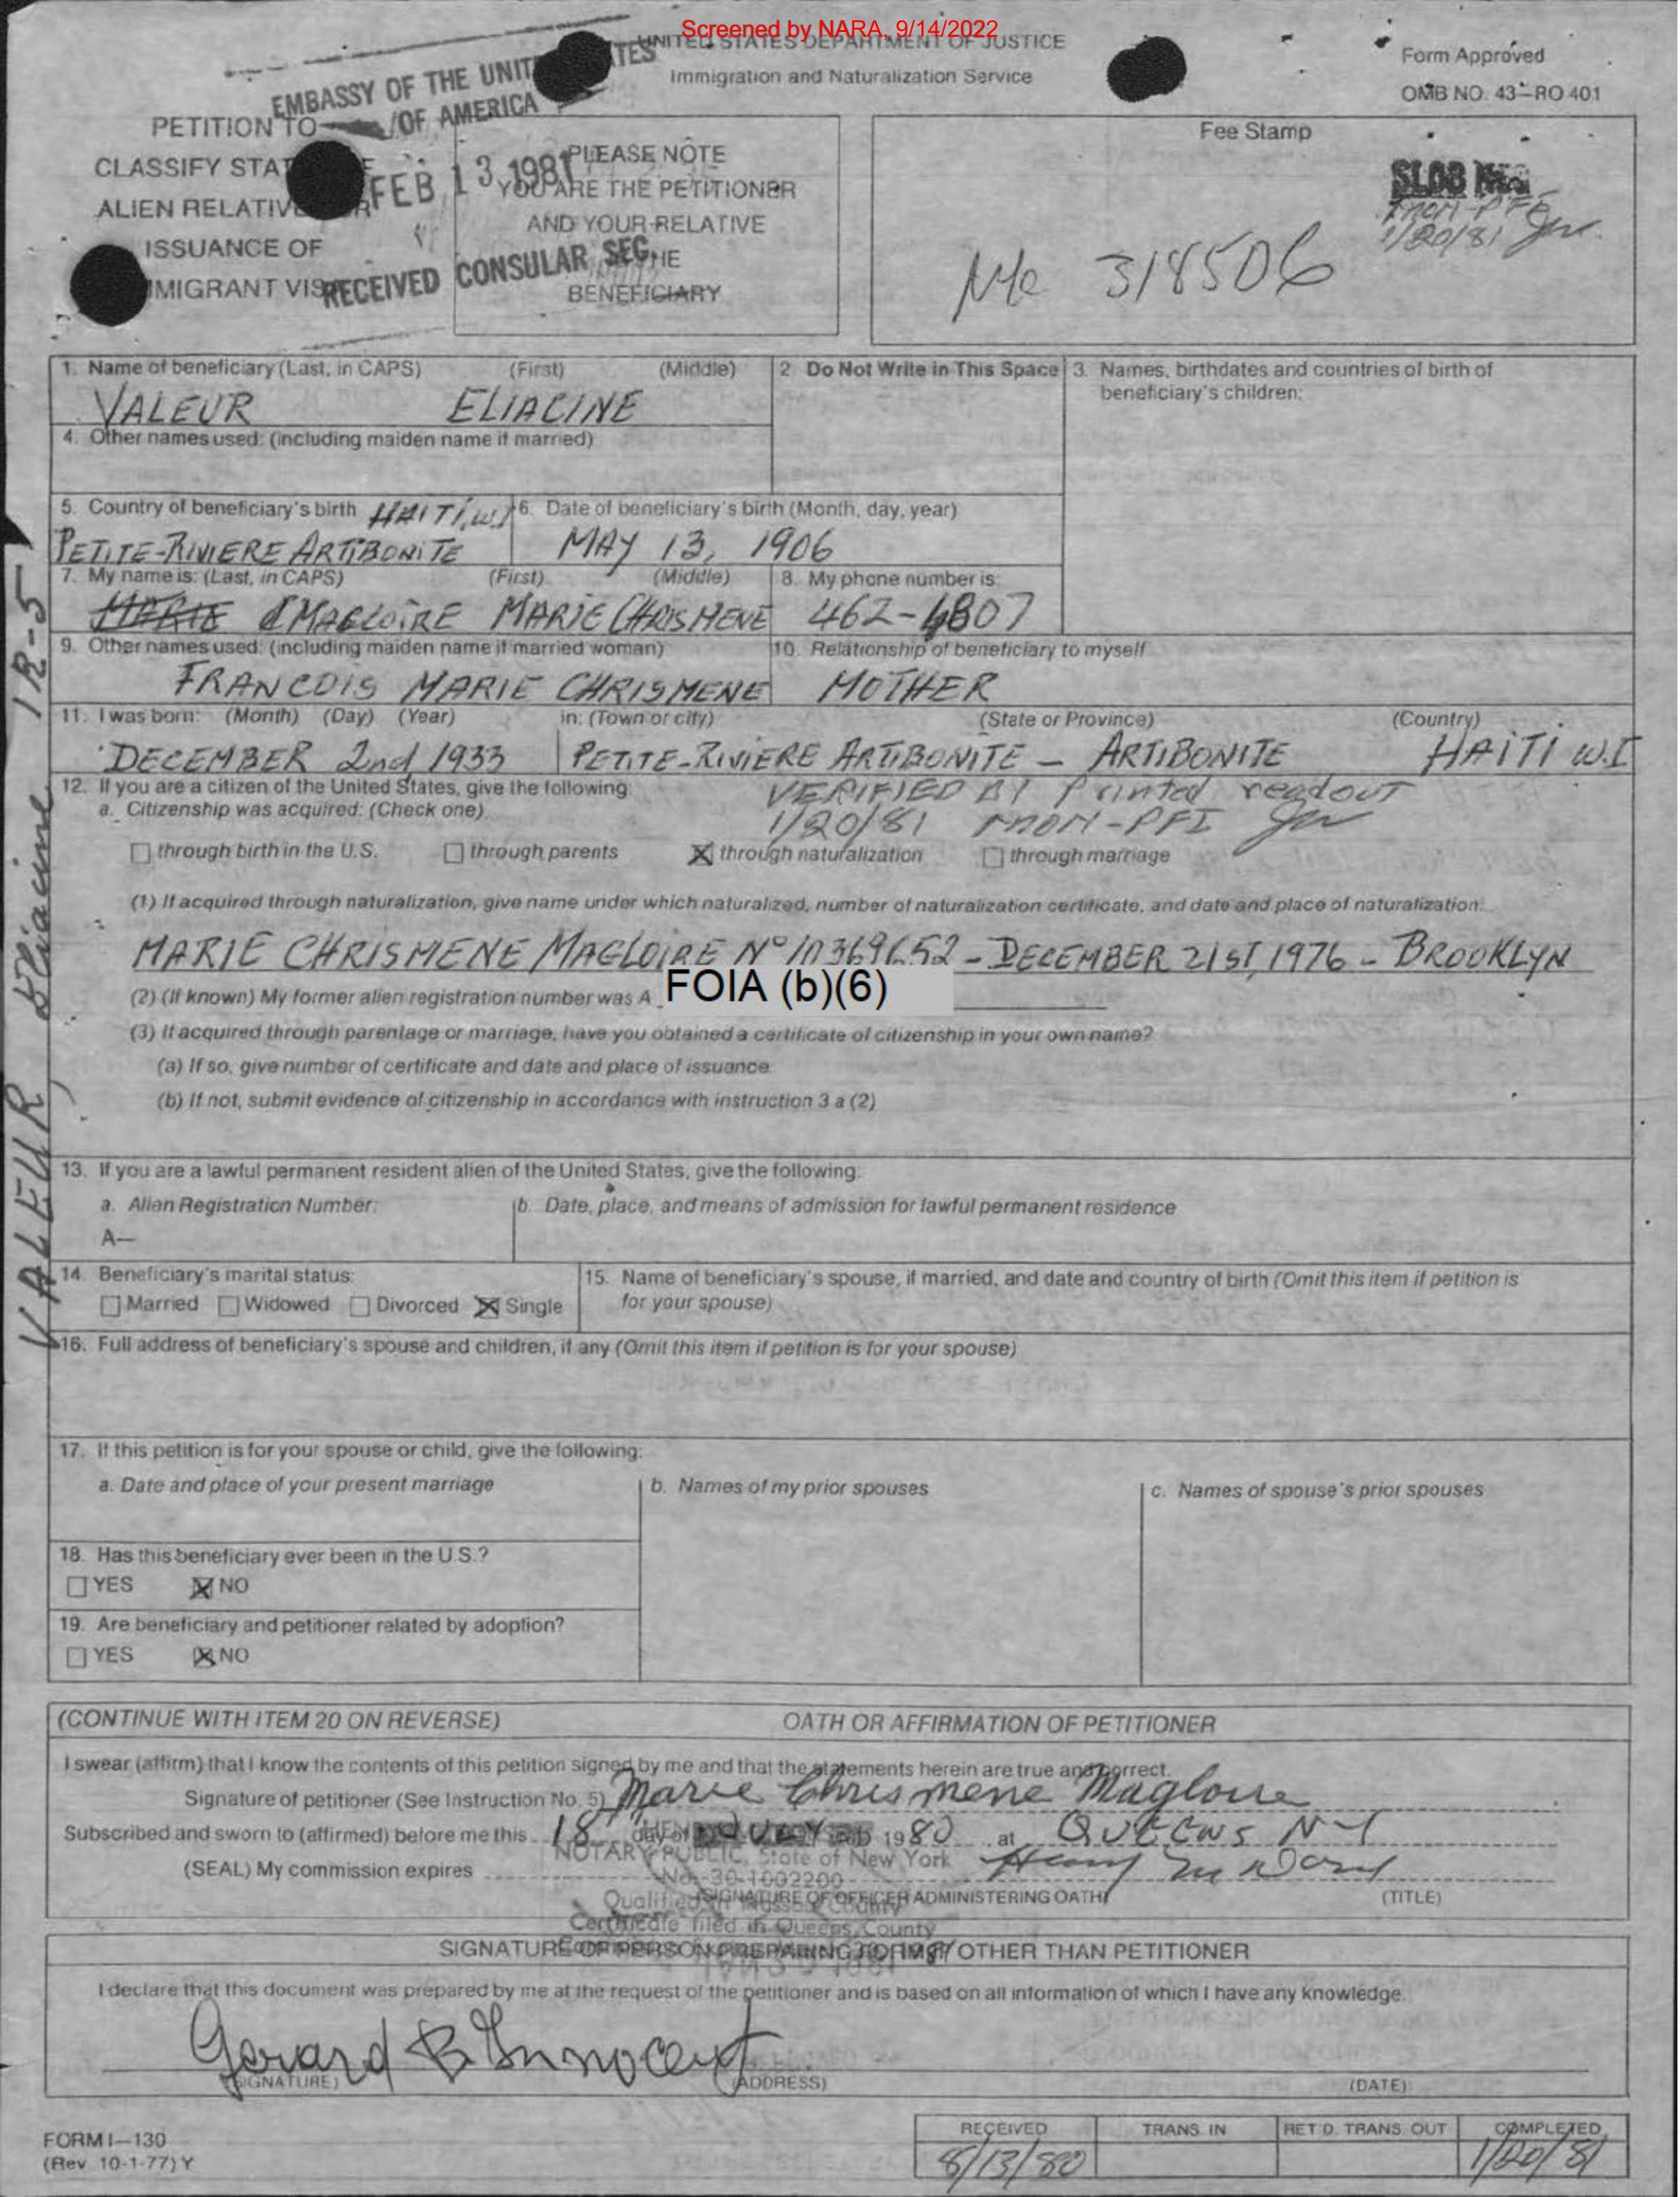 Screened by NARA, 9/14/2022
UNITED STATES DEPARTMENT OF JUSTICE
Immigration and Naturalization Service
Form Approved
OMB NO. 43-RO 401
EMBASSY OF THE UNIT TES
OF AMERICA
FEB 13 1981
RECEIVED CONSULAR SEC.
PETITION TO
CLASSIFY STAT
ALIEN RELATIVE R
ISSUANCE OF
MIGRANT VIS
PLEASE NOTE
YOU ARE THE PETITIONER
AND YOUR RELATIVE
HE
BENEFICIARY
Fee Stamp
1/20/81
318506
1. Name of beneficiary (Last, in CAPS) (First) (Middle)
VALEUR ELIACINE
2 Do Not Write in This Space
3. Names, birthdates and countries of birth of
beneficiary's children:
4. Other names used: (including maiden name if married)
5. Country of beneficiary's birth HAITI, W.I
PETITE-RIVIERE ARTIBONITE
6. Date of beneficiary's birth (Month, day, year)
MAY 13, 1906
7. My name is: (Last, in CAPS) (First) (Middle)
MARIE MAGLOIRE MARIE CHRISMENE
8. My phone number is:
462-4807
9. Other names used: (including maiden name if married woman)
FRANCOIS MARIE CHRISMENE
10. Relationship of beneficiary to myself
MOTHER
11. I was born: (Month) (Day) (Year) in: (Town or city) (State or Province) (Country)
DECEMBER 2nd 1933 PETITE-RIVIERE ARTIBONITE - ARTIBONITE HAITI W.I
12. If you are a citizen of the United States, give the following:
VERIFIED BY Printed readout
a. Citizenship was acquired: (Check one)
1/20/81 MON-PFI
through birth in the U.S. through parents through naturalization through marriage
(1) If acquired through naturalization, give name under which naturalized, number of naturalization certificate, and date and place of naturalization:
MARIE CHRISMENE MAGLOIRE N° 10369652 - DECEMBER 21ST, 1976 - BROOKLYN
(2) (If known) My former alien registration number was A FOIA (b)(6)
(3) If acquired through parentage or marriage, have you obtained a certificate of citizenship in your own name?
(a) If so, give number of certificate and date and place of issuance:
(b) If not, submit evidence of citizenship in accordance with instruction 3 a (2)
13. If you are a lawful permanent resident alien of the United States, give the following:
a. Alien Registration Number:
A—
b. Date, place, and means of admission for lawful permanent residence
14. Beneficiary's marital status:
Married Widowed Divorced Single
15. Name of beneficiary's spouse, if married, and date and country of birth (Omit this item if petition is
for your spouse)
16. Full address of beneficiary's spouse and children, if any (Omit this item if petition is for your spouse)
17. If this petition is for your spouse or child, give the following:
a. Date and place of your present marriage
b. Names of my prior spouses
c. Names of spouse's prior spouses
18. Has this beneficiary ever been in the U.S.?
YES NO
19. Are beneficiary and petitioner related by adoption?
YES NO
VALEUR Eliacine IR-5
(CONTINUE WITH ITEM 20 ON REVERSE) OATH OR AFFIRMATION OF PETITIONER
I swear (affirm) that I know the contents of this petition signed by me and that the statements herein are true and correct.
Signature of petitioner (See Instruction No. 5) Marie Chrismene Magloire
Subscribed and sworn to (affirmed) before me this 18 day of JULY 1980 at QUEENS N-Y
NOTARY PUBLIC, State of New York
(SEAL) My commission expires
No. 30-1002200
SIGNATURE OF OFFICER ADMINISTERING OATH (TITLE)
Qualified in Nassau County
Certificate filed in Queens County
SIGNATURE OF PERSON PREPARING FORM, IF OTHER THAN PETITIONER
I declare that this document was prepared by me at the request of the petitioner and is based on all information of which I have any knowledge.
Gerard B Innocent
(SIGNATURE) (ADDRESS) (DATE)
FORM I-130
(Rev. 10-1-77) Y
RECEIVED TRANS. IN RET'D. TRANS. OUT COMPLETED
8/13/80 1/20/81